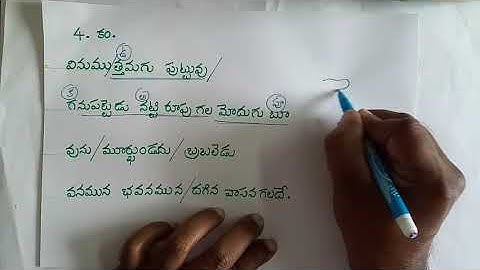 4. కం.
వినుముత్తమగు పుట్టువు/
గనుపట్టెడు నట్టి రూపు గల మోదుగు బూ
వును/మూర్ఖుండను/బ్రబలెడు
వనమున భవనమున/దగిన వాసన గలదే.